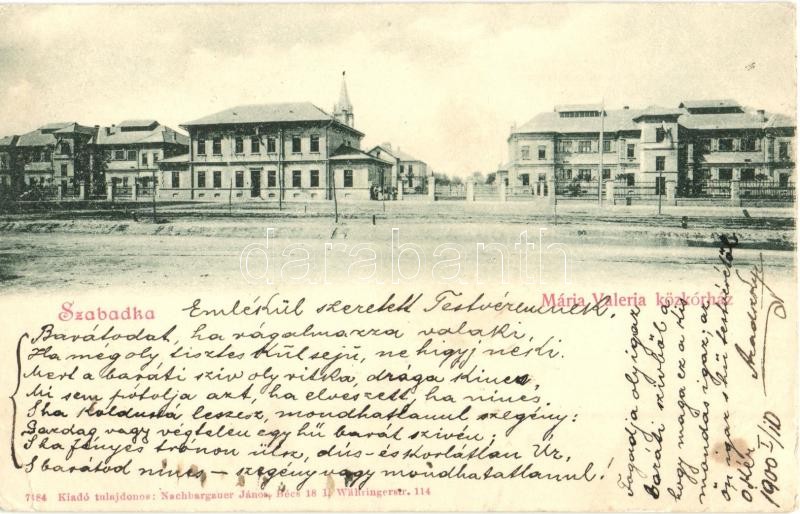 Szabadka
Mária Valeria közkórház
Emlékül szeretett Testvéremnek.
Barátodat, ha rágalmazza valaki,
Ha mégoly tisztes külsejű, ne higyj neki.
Mert a baráti sziv oly ritka, drága kincs,
Mi sem pótolja azt, ha elveszett, ha nincs
S ha koldussá leszesz, mondhatlanul szegény:
Gazdag vagy végtelen egy hű barát szivén,
S ha fényes trónon ülsz, dús- és korlátlan Úr,
S barátod nincs – szegény vagy mondhatatlanul!
Fogadja oly igaz
baráti szivből a
hogy maga ez a kis
mondás igaz; az
ön igaz s hű testvérétől
1900 I/10
darabanth.com
7484 Kiadó tulajdonos: Nachbargauer János, Bécs 18 I, Währingerstr. 114